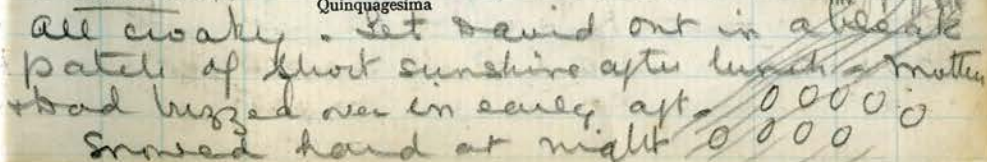 Quinquagesima
All croaky. Let David out in a bleak
patch of short sunshine after lunch - Mother
+ Dad buzzed over in early aft. O O O O O
Snowed hard at night O O O O